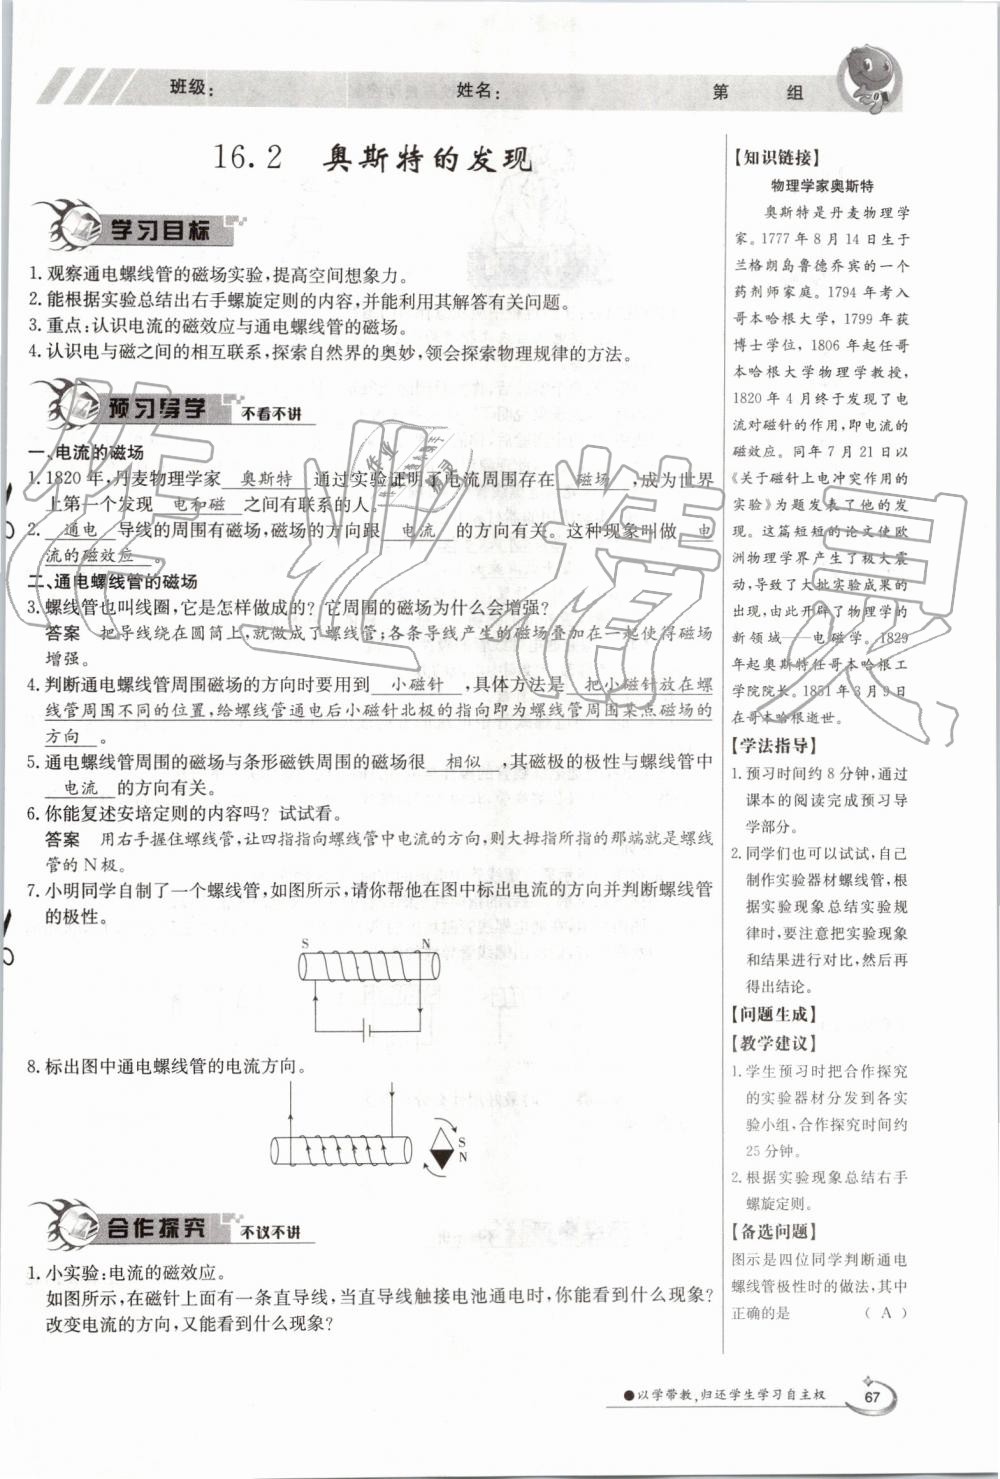 班级：
姓名：
第　组
16.2　奥斯特的发现
学习目标
1. 观察通电螺线管的磁场实验，提高空间想象力。
2. 能根据实验总结出右手螺旋定则的内容，并能利用其解答有关问题。
3. 重点：认识电流的磁效应与通电螺线管的磁场。
4. 认识电与磁之间的相互联系，探索自然界的奥妙，领会探索物理规律的方法。
预习导学　不看不讲
一、电流的磁场
1. 1820 年，丹麦物理学家 奥斯特 通过实验证明了电流周围存在 磁场 ，成为世界
上第一个发现 电和磁 之间有联系的人。
2. 通电 导线的周围有磁场，磁场的方向跟 电流 的方向有关。这种现象叫做 电
流的磁效应 。
二、通电螺线管的磁场
3. 螺线管也叫线圈，它是怎样做成的？它周围的磁场为什么会增强？
答案　把导线绕在圆筒上，就做成了螺线管；各条导线产生的磁场叠加在一起使得磁场
增强。
4. 判断通电螺线管周围磁场的方向时要用到 小磁针 ，具体方法是 把小磁针放在螺
线管周围不同的位置，给螺线管通电后小磁针北极的指向即为螺线管周围某点磁场的
方向 。
5. 通电螺线管周围的磁场与条形磁铁周围的磁场很 相似 ，其磁极的极性与螺线管中
电流 的方向有关。
6. 你能复述安培定则的内容吗？试试看。
答案　用右手握住螺线管，让四指指向螺线管中电流的方向，则大拇指所指的那端就是螺线
管的 N 极。
7. 小明同学自制了一个螺线管，如图所示，请你帮他在图中标出电流的方向并判断螺线管
的极性。
S　N
8. 标出图中通电螺线管的电流方向。
S
N
合作探究　不议不讲
1. 小实验：电流的磁效应。
如图所示，在磁针上面有一条直导线，当直导线触接电池通电时，你能看到什么现象？
改变电流的方向，又能看到什么现象？
【知识链接】
物理学家奥斯特
奥斯特是丹麦物理学
家。1777 年 8 月 14 日生于
兰格朗岛鲁德乔宾的一个
药剂师家庭。1794 年考入
哥本哈根大学，1799 年获
博士学位，1806 年起任哥
本哈根大学物理学教授，
1820 年 4 月终于发现了电
流对磁针的作用，即电流的
磁效应。同年 7 月 21 日以
《关于磁针上电冲突作用的
实验》为题发表了他的发
现。这篇短短的论文使欧
洲物理学界产生了极大震
动，导致了大批实验成果的
出现，由此开辟了物理学的
新领域——电磁学。1829
年起奥斯特任哥本哈根工
学院院长。1851 年 3 月 9 日
在哥本哈根逝世。
【学法指导】
1. 预习时间约 8 分钟，通过
课本的阅读完成预习导
学部分。
2. 同学们也可以试试，自己
制作实验器材螺线管，根
据实验现象总结实验规
律时，要注意把实验现象
和结果进行对比，然后再
得出结论。
【问题生成】
【教学建议】
1. 学生预习时把合作探究
的实验器材分发到各实
验小组，合作探究时间约
25 分钟。
2. 根据实验现象总结右手
螺旋定则。
【备选问题】
图示是四位同学判断通电
螺线管极性时的做法，其中
正确的是　（ A ）
●以学带教，归还学生学习自主权
67
作业精灵